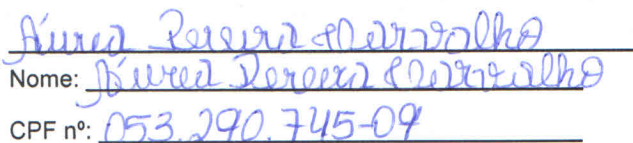 Áurea Pereira Marvalho
Nome: Áurea Pereira Marvalho
CPF nº: 053.290.745-09